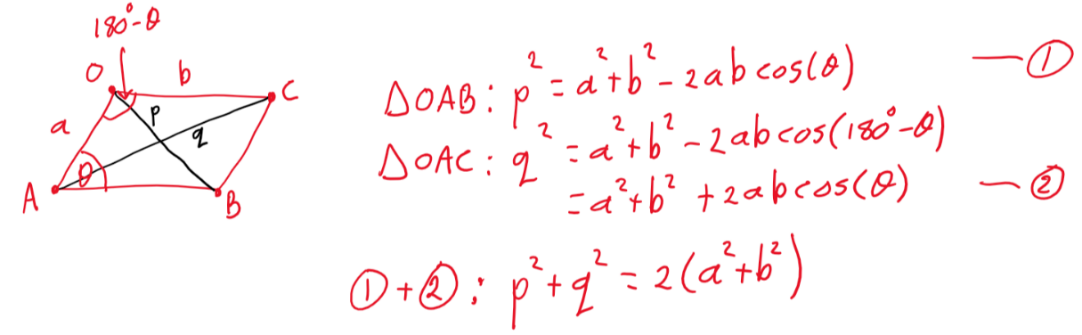 180°-θ
O b C
a p q
θ
A B
△OAB: p² = a²+b² - 2ab cos(θ) — ①
△OAC: q² = a²+b² - 2ab cos(180°-θ)
= a²+b² + 2ab cos(θ) — ②
①+②: p²+q² = 2(a²+b²)